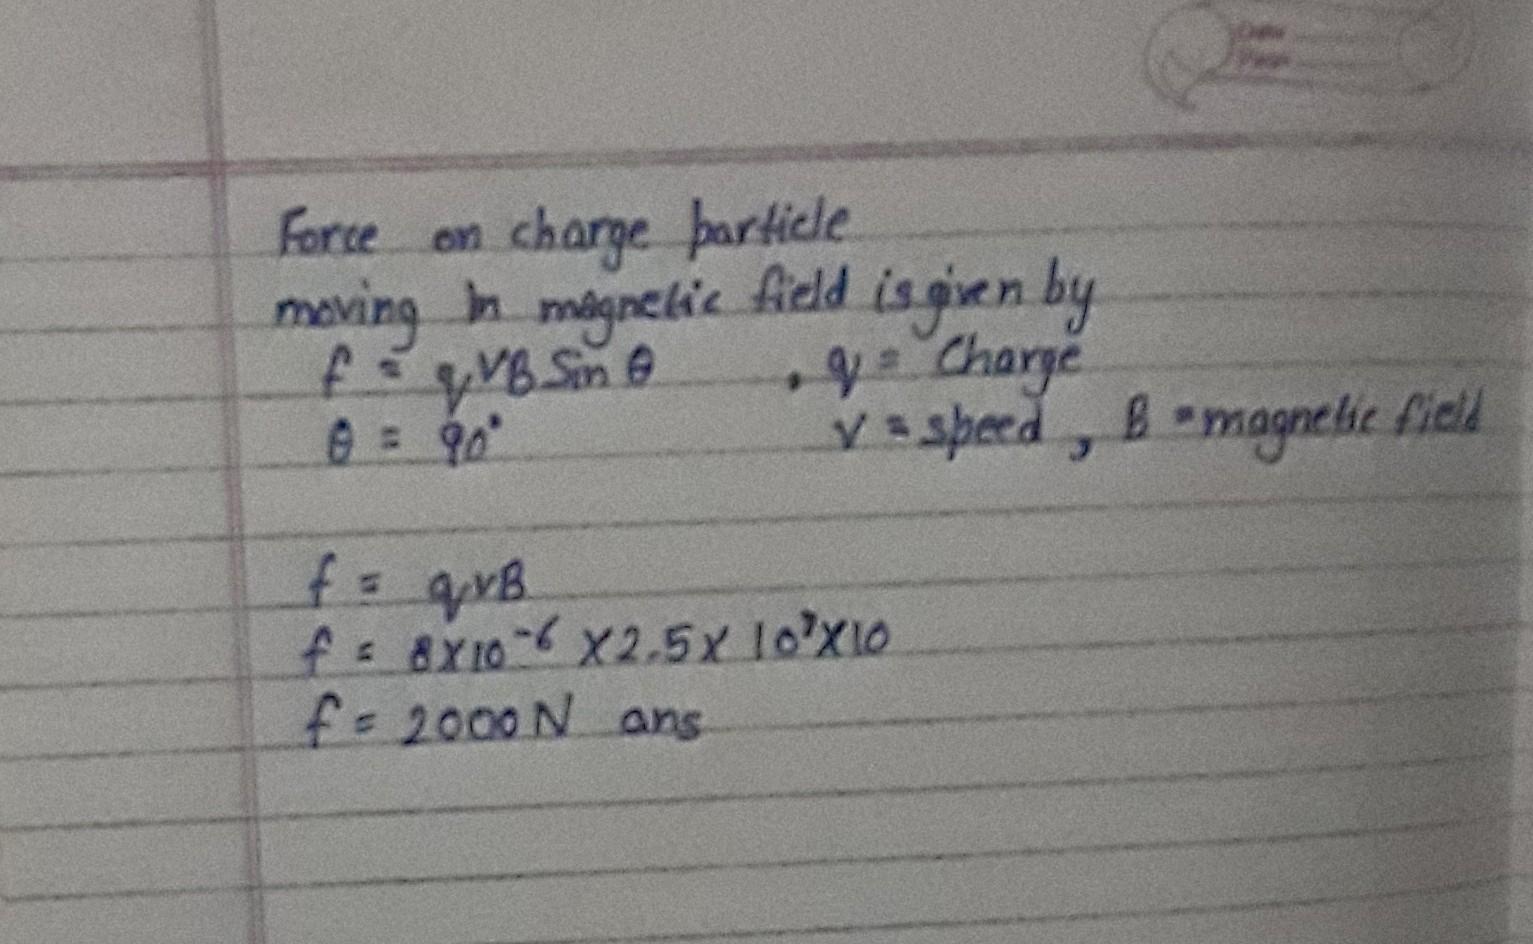 Force on charge particle
moving in magnetic field is given by
f = qvB Sin θ , q = Charge
θ = 90° v = speed , B = magnetic field
f = qvB
f = 8×10⁻⁶ × 2.5 × 10⁷ × 10
f = 2000 N ans